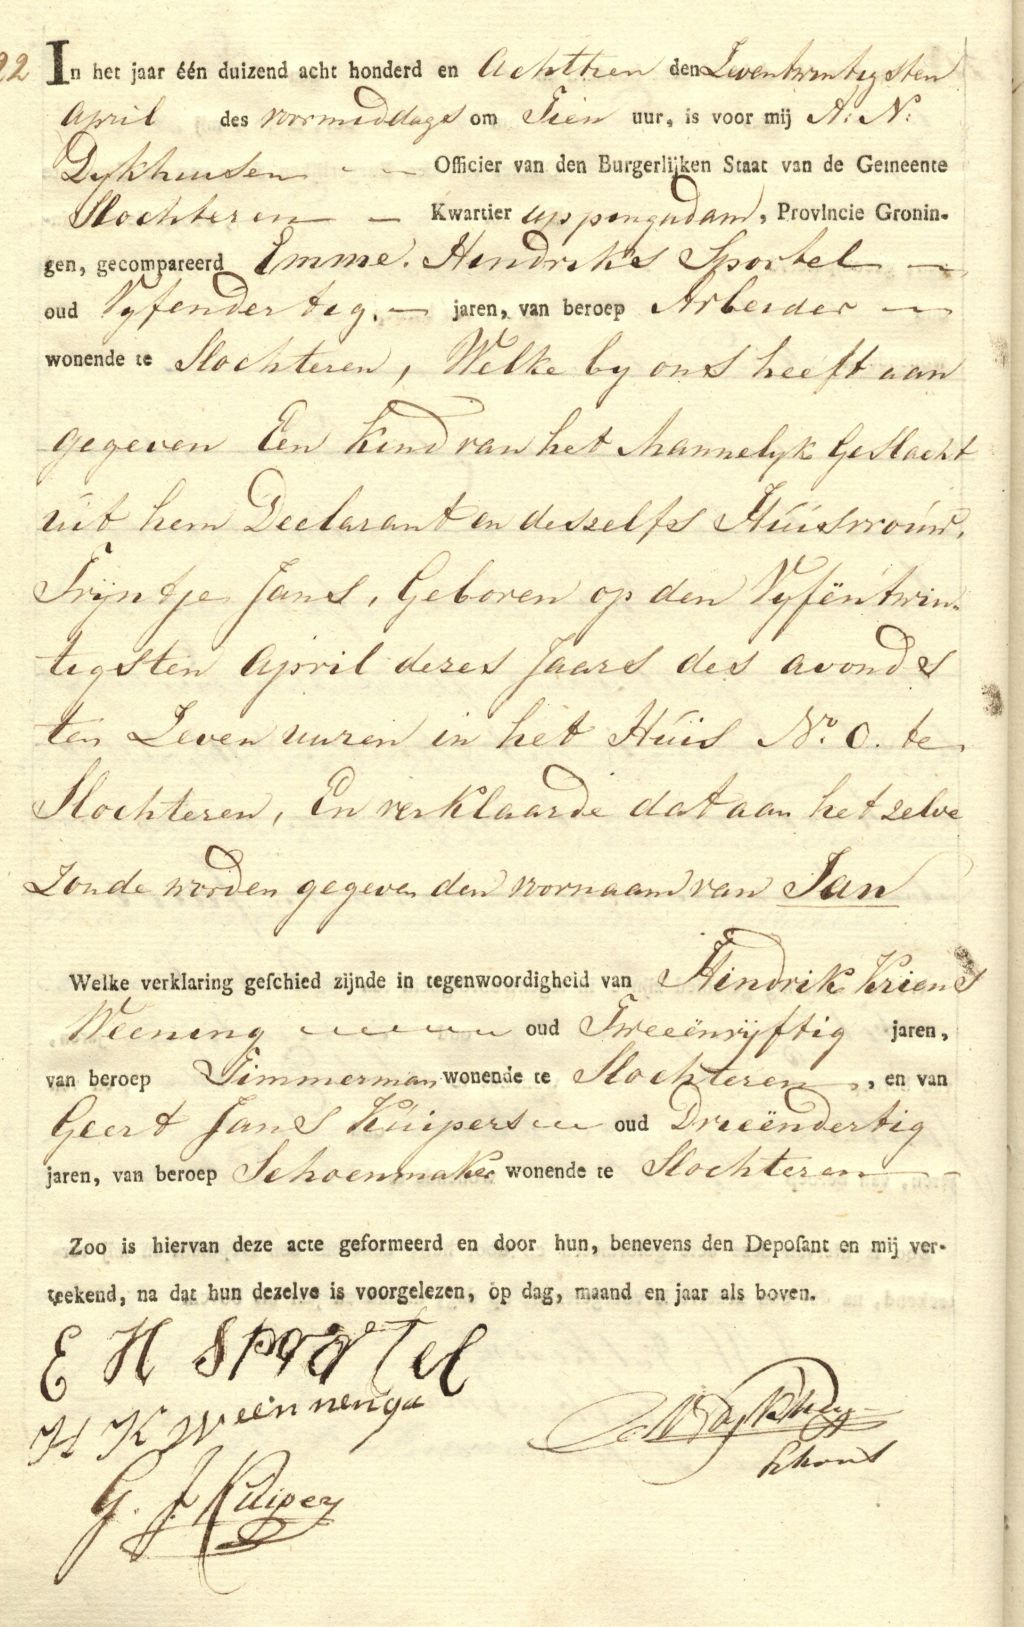 22 In het jaar één duizend acht honderd en Achttien den Zeventwintigsten
April des voormiddags om Tien uur, is voor mij A: N:
Dykhuisen Officier van den Burgerlijken Staat van de Gemeente
Slochteren Kwartier appingadam, Provincie Gronin-
gen, gecompareerd Emme. Hendriks Sportel
oud Vyfendertig. jaren, van beroep Arbeider
wonende te Slochteren, Welke by ons heeft aan
gegeven Een Kind van het Mannelyk Geslacht
uit hem Declarant en deszelfs Huisvrouw.
Trijntje Jans, Geboren op den Vyfëntwin-
tigsten April dezes Jaars des avonds
ten Zeven uuren in het Huis No. 0. te
Slochteren, En verklaarde dat aan het zelve
Zoude worden gegeven den voornaam van Jan
Welke verklaring geschied zijnde in tegenwoordigheid van Hindrik Kriens
Weening oud Tweeënvijftig jaren,
van beroep Timmerman wonende te Slochteren, en van
Geert Jans Kuipers oud Drieëndertig
jaren, van beroep Schoenmaker wonende te Slochteren
Zoo is hiervan deze acte geformeerd en door hun, benevens den Deposant en mij ver-
teekend, na dat hun dezelve is voorgelezen, op dag, maand en jaar als boven.
E H Sportel
H K Weënnenga
G. J. Kuiper
Schout